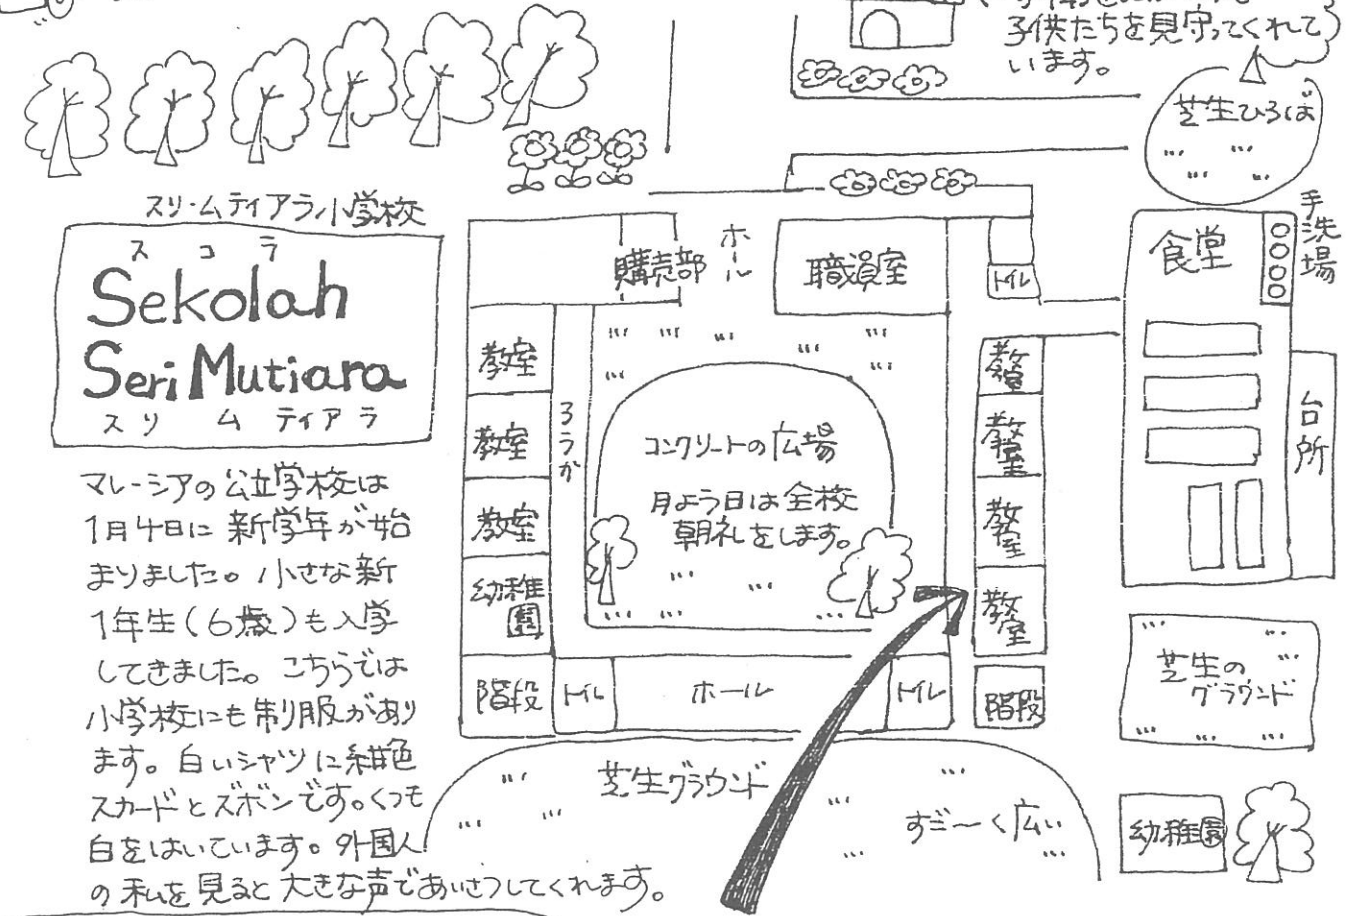 子供たちを見守ってくれて
います。
芝生ひろば
スリ・ムティアラ小学校
スコラ
Sekolah
Seri Mutiara
スリ ムティアラ
マレーシアの公立学校は
1月4日に新学年が始
まりました。小さな新
1年生(6歳)も入学
してきました。こちらでは
小学校にも制服があり
ます。白いシャツに紺色
スカートとズボンです。くつも
白をはいています。外国人
の私を見ると大きな声であいさつしてくれます。
購売部
ホール
職員室
トイレ
食堂
手洗場
台所
教室
教室
教室
幼稚園
階段
トイレ
ホール
トイレ
ろうか
コンクリートの広場
月よう日は全校
朝礼をします。
教室
教室
教室
教室
階段
芝生の
グラウンド
芝生グラウンド
すご〜く広い
幼稚園